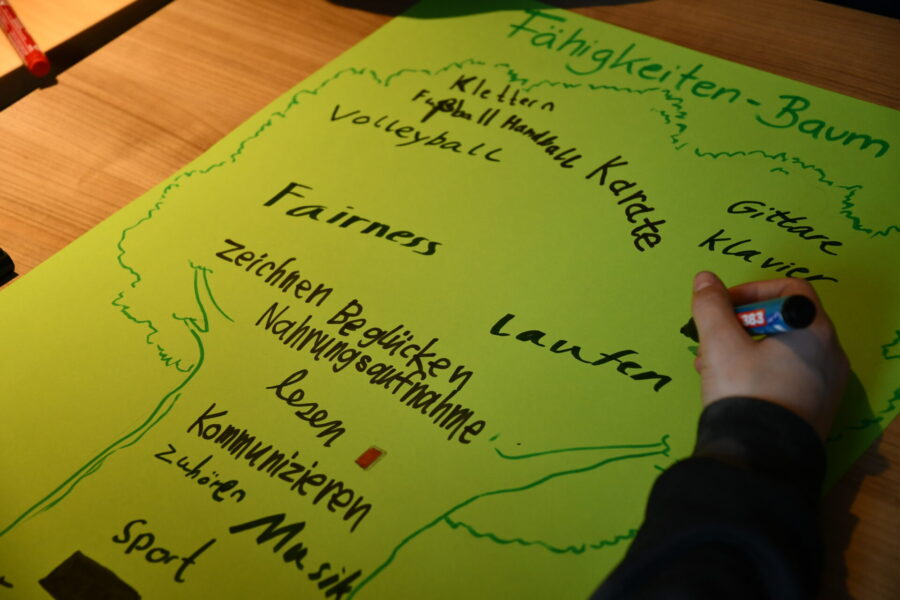 Fähigkeiten-Baum
Klettern
Fußball Handball
Volleyball
Karate
Gittare
Klavier
Fairness
383
zeichnen Beglücken
Nahrungsaufnahme
Laufen
lesen
Kommunizieren
zuhören
Musik
Sport